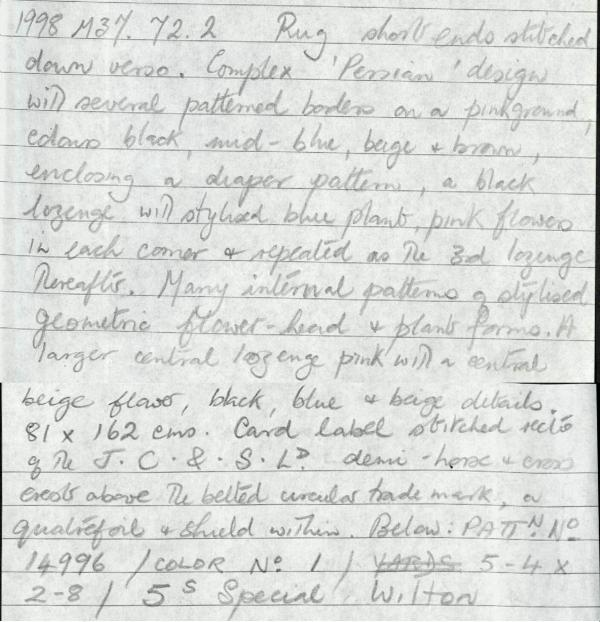 1998 M37. 72.2 Rug short ends stitched
down verso. Complex 'Persian' design
with several patterned borders on a pink ground,
colours black, mid-blue, beige & brown,
enclosing a diaper pattern, a black
lozenge with stylised blue plants, pink flowers
in each corner & repeated as the 3rd lozenge
thereafter. Many internal patterns of stylised
geometric flower-head & plant forms. A
larger central lozenge pink with a central
beige flower, black, blue & beige details.
81 x 162 cms. Card label stitched recto
of the J.C.&.S.LD. demi-horse & cross
crests above the belted circular trade mark, a
quatrefoil & shield within. Below: PATTN. No
14996 / COLOR No 1 / YARDS 5-4 x
2-8 / 5s Special Wilton